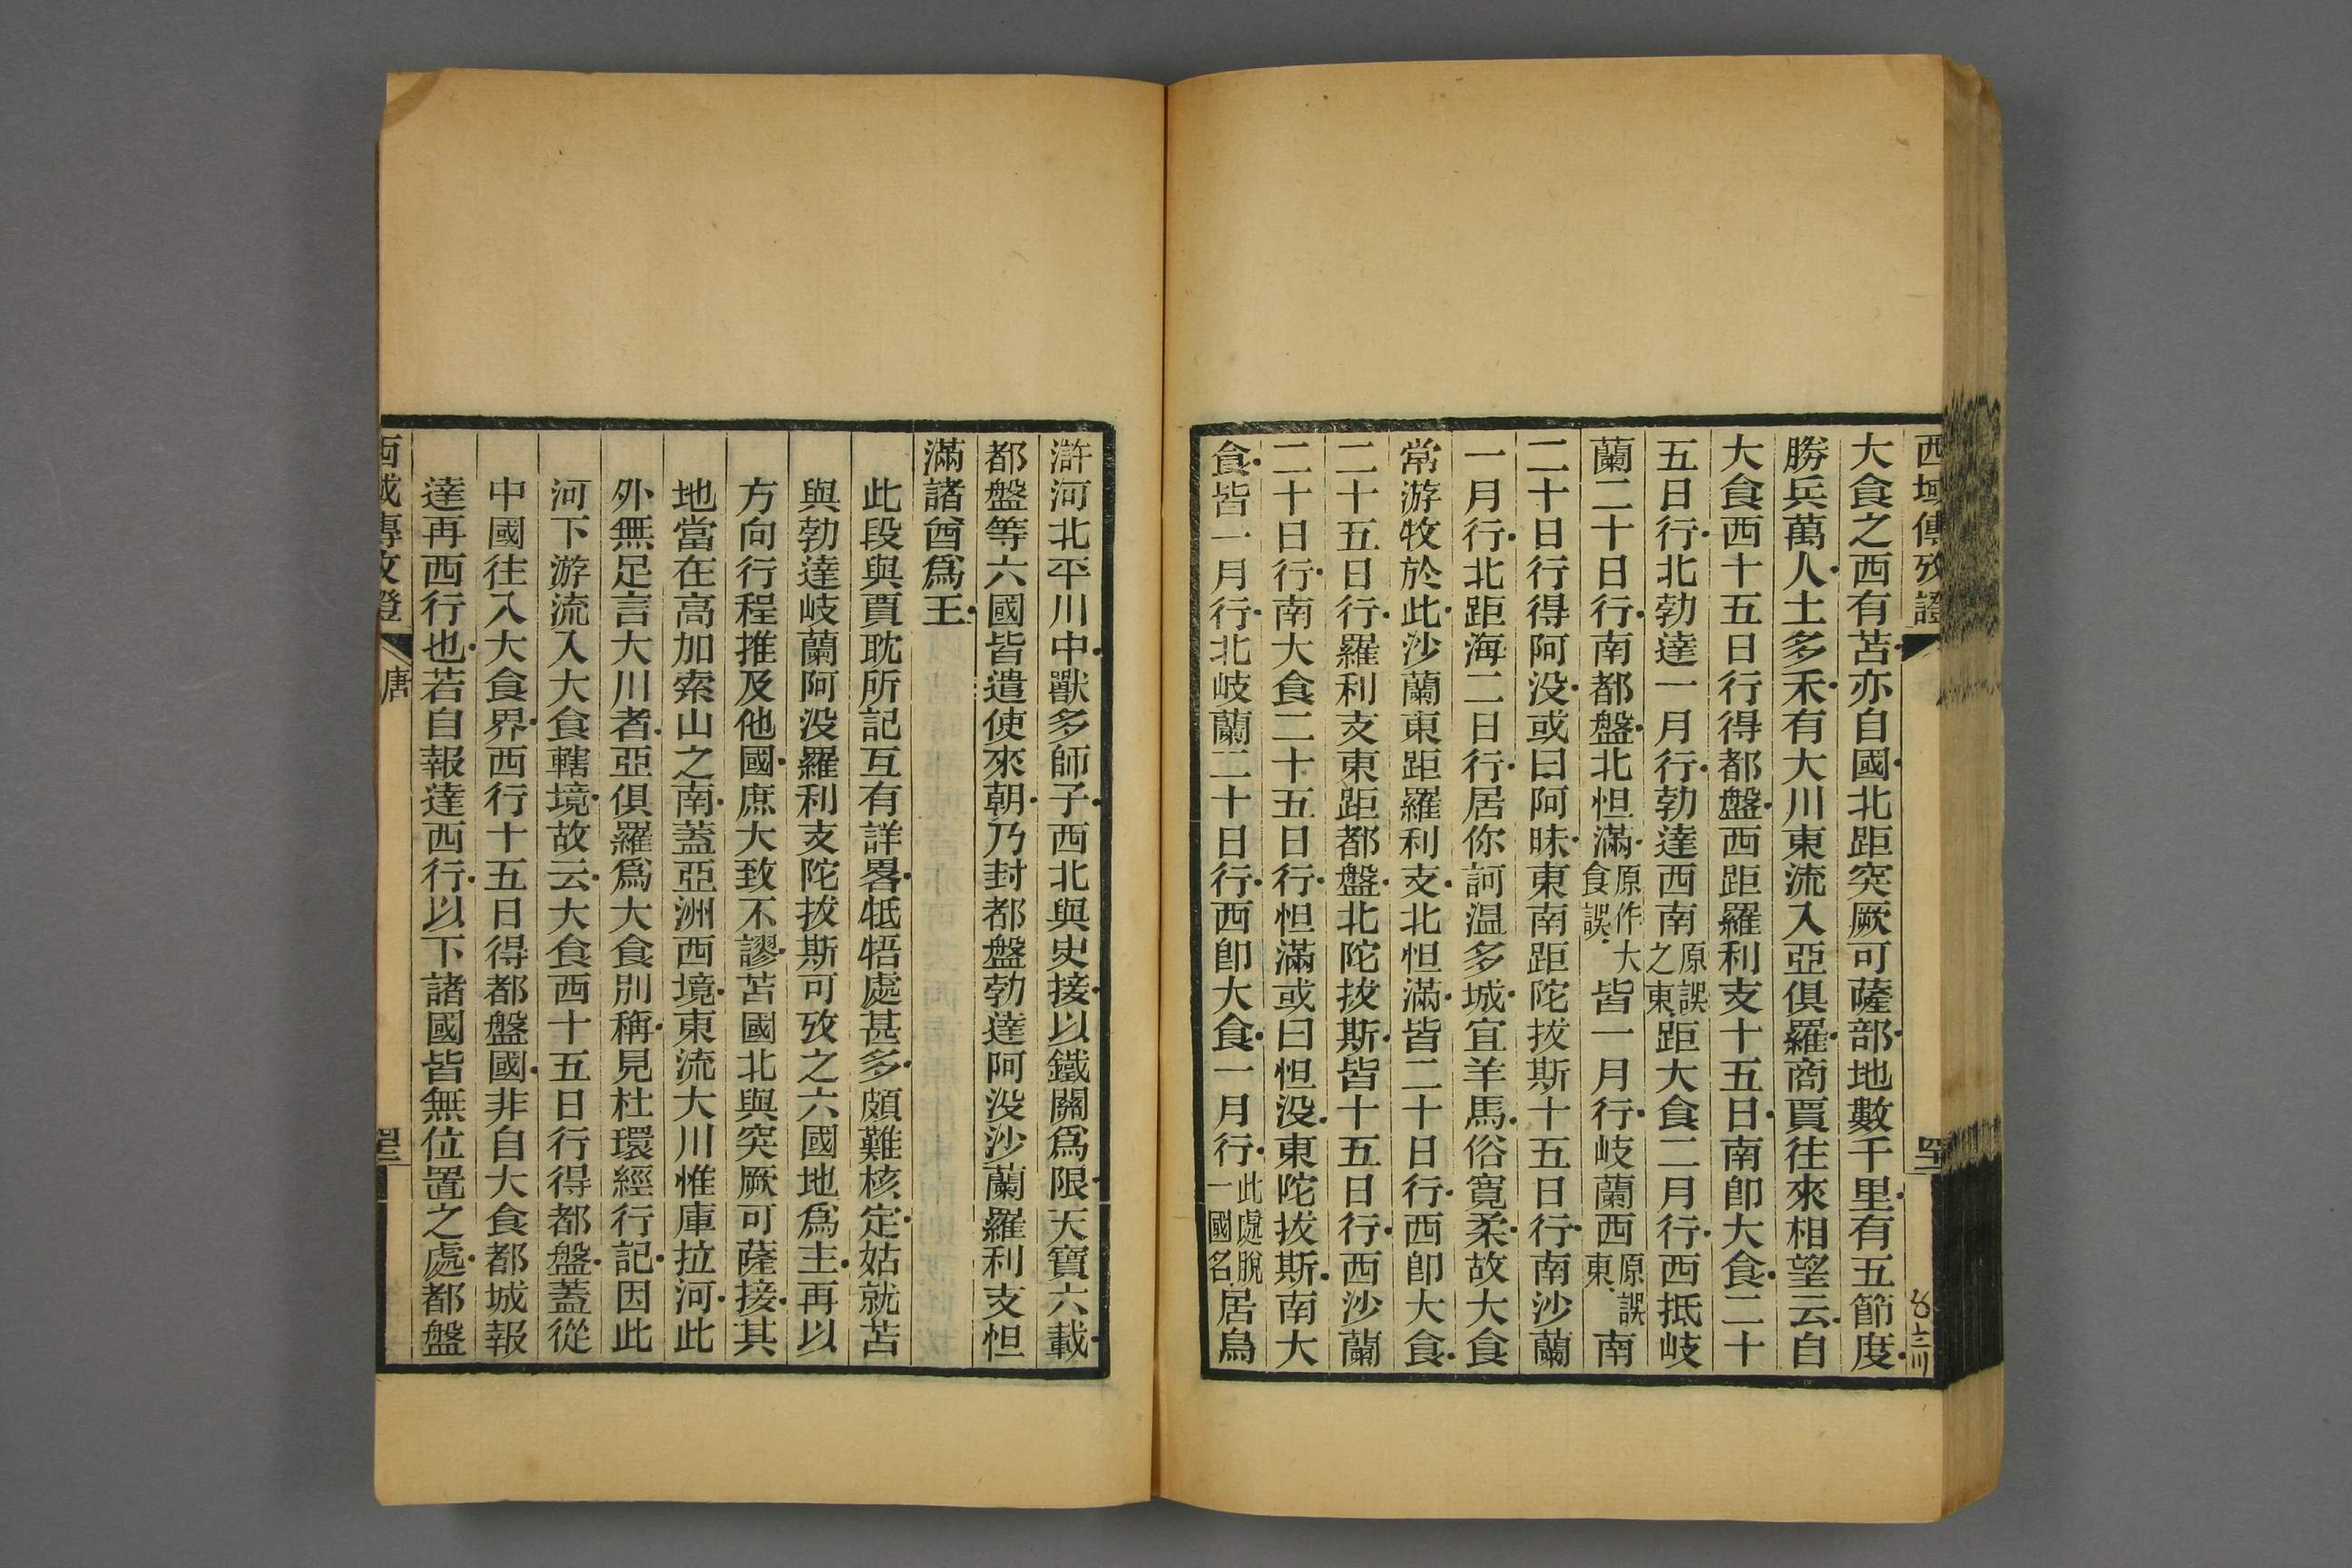 西域傳攷證
大食之西有苫亦自國北距突厥可薩部地數千里有五節度
勝兵萬人土多禾有大川東流入亞俱羅商賈往來相望云自
大食西十五日行得都盤西距羅利支十五日南卽大食二十
五日行北勃達一月行勃達西南原誤之東距大食二月行西抵岐
蘭二十日行南都盤北怛滿原作大食誤皆一月行岐蘭西原誤東南
二十日行得阿没或曰阿昧東南距陀拔斯十五日行南沙蘭
一月行北距海二日行居你訶温多城宜羊馬俗寬柔故大食
常游牧於此沙蘭東距羅利支北怛滿皆二十日行西卽大食
二十五日行羅利支東距都盤北陀拔斯皆十五日行西沙蘭
二十日行南大食二十五日行怛滿或曰怛没東陀拔斯南大
食皆一月行北岐蘭二十日行西卽大食一月行此處脫一國名居烏
滸河北平川中獸多師子西北與史接以鐵關爲限天寶六載
都盤等六國皆遣使來朝乃封都盤勃達阿没沙蘭羅利支怛
滿諸酋爲王
此段與賈耽所記互有詳畧牴牾處甚多頗難核定姑就苫
與勃達岐蘭阿没羅利支陀拔斯可攷之六國地爲主再以
方向行程推及他國庶大致不謬苫國北與突厥可薩接其
地當在高加索山之南蓋亞洲西境東流大川惟庫拉河此
外無足言大川者亞俱羅爲大食別稱見杜環經行記因此
河下游流入大食轄境故云大食西十五日行得都盤蓋從
中國往入大食界西行十五日得都盤國非自大食都城報
達再西行也若自報達西行以下諸國皆無位置之處都盤
西域傳攷證
唐